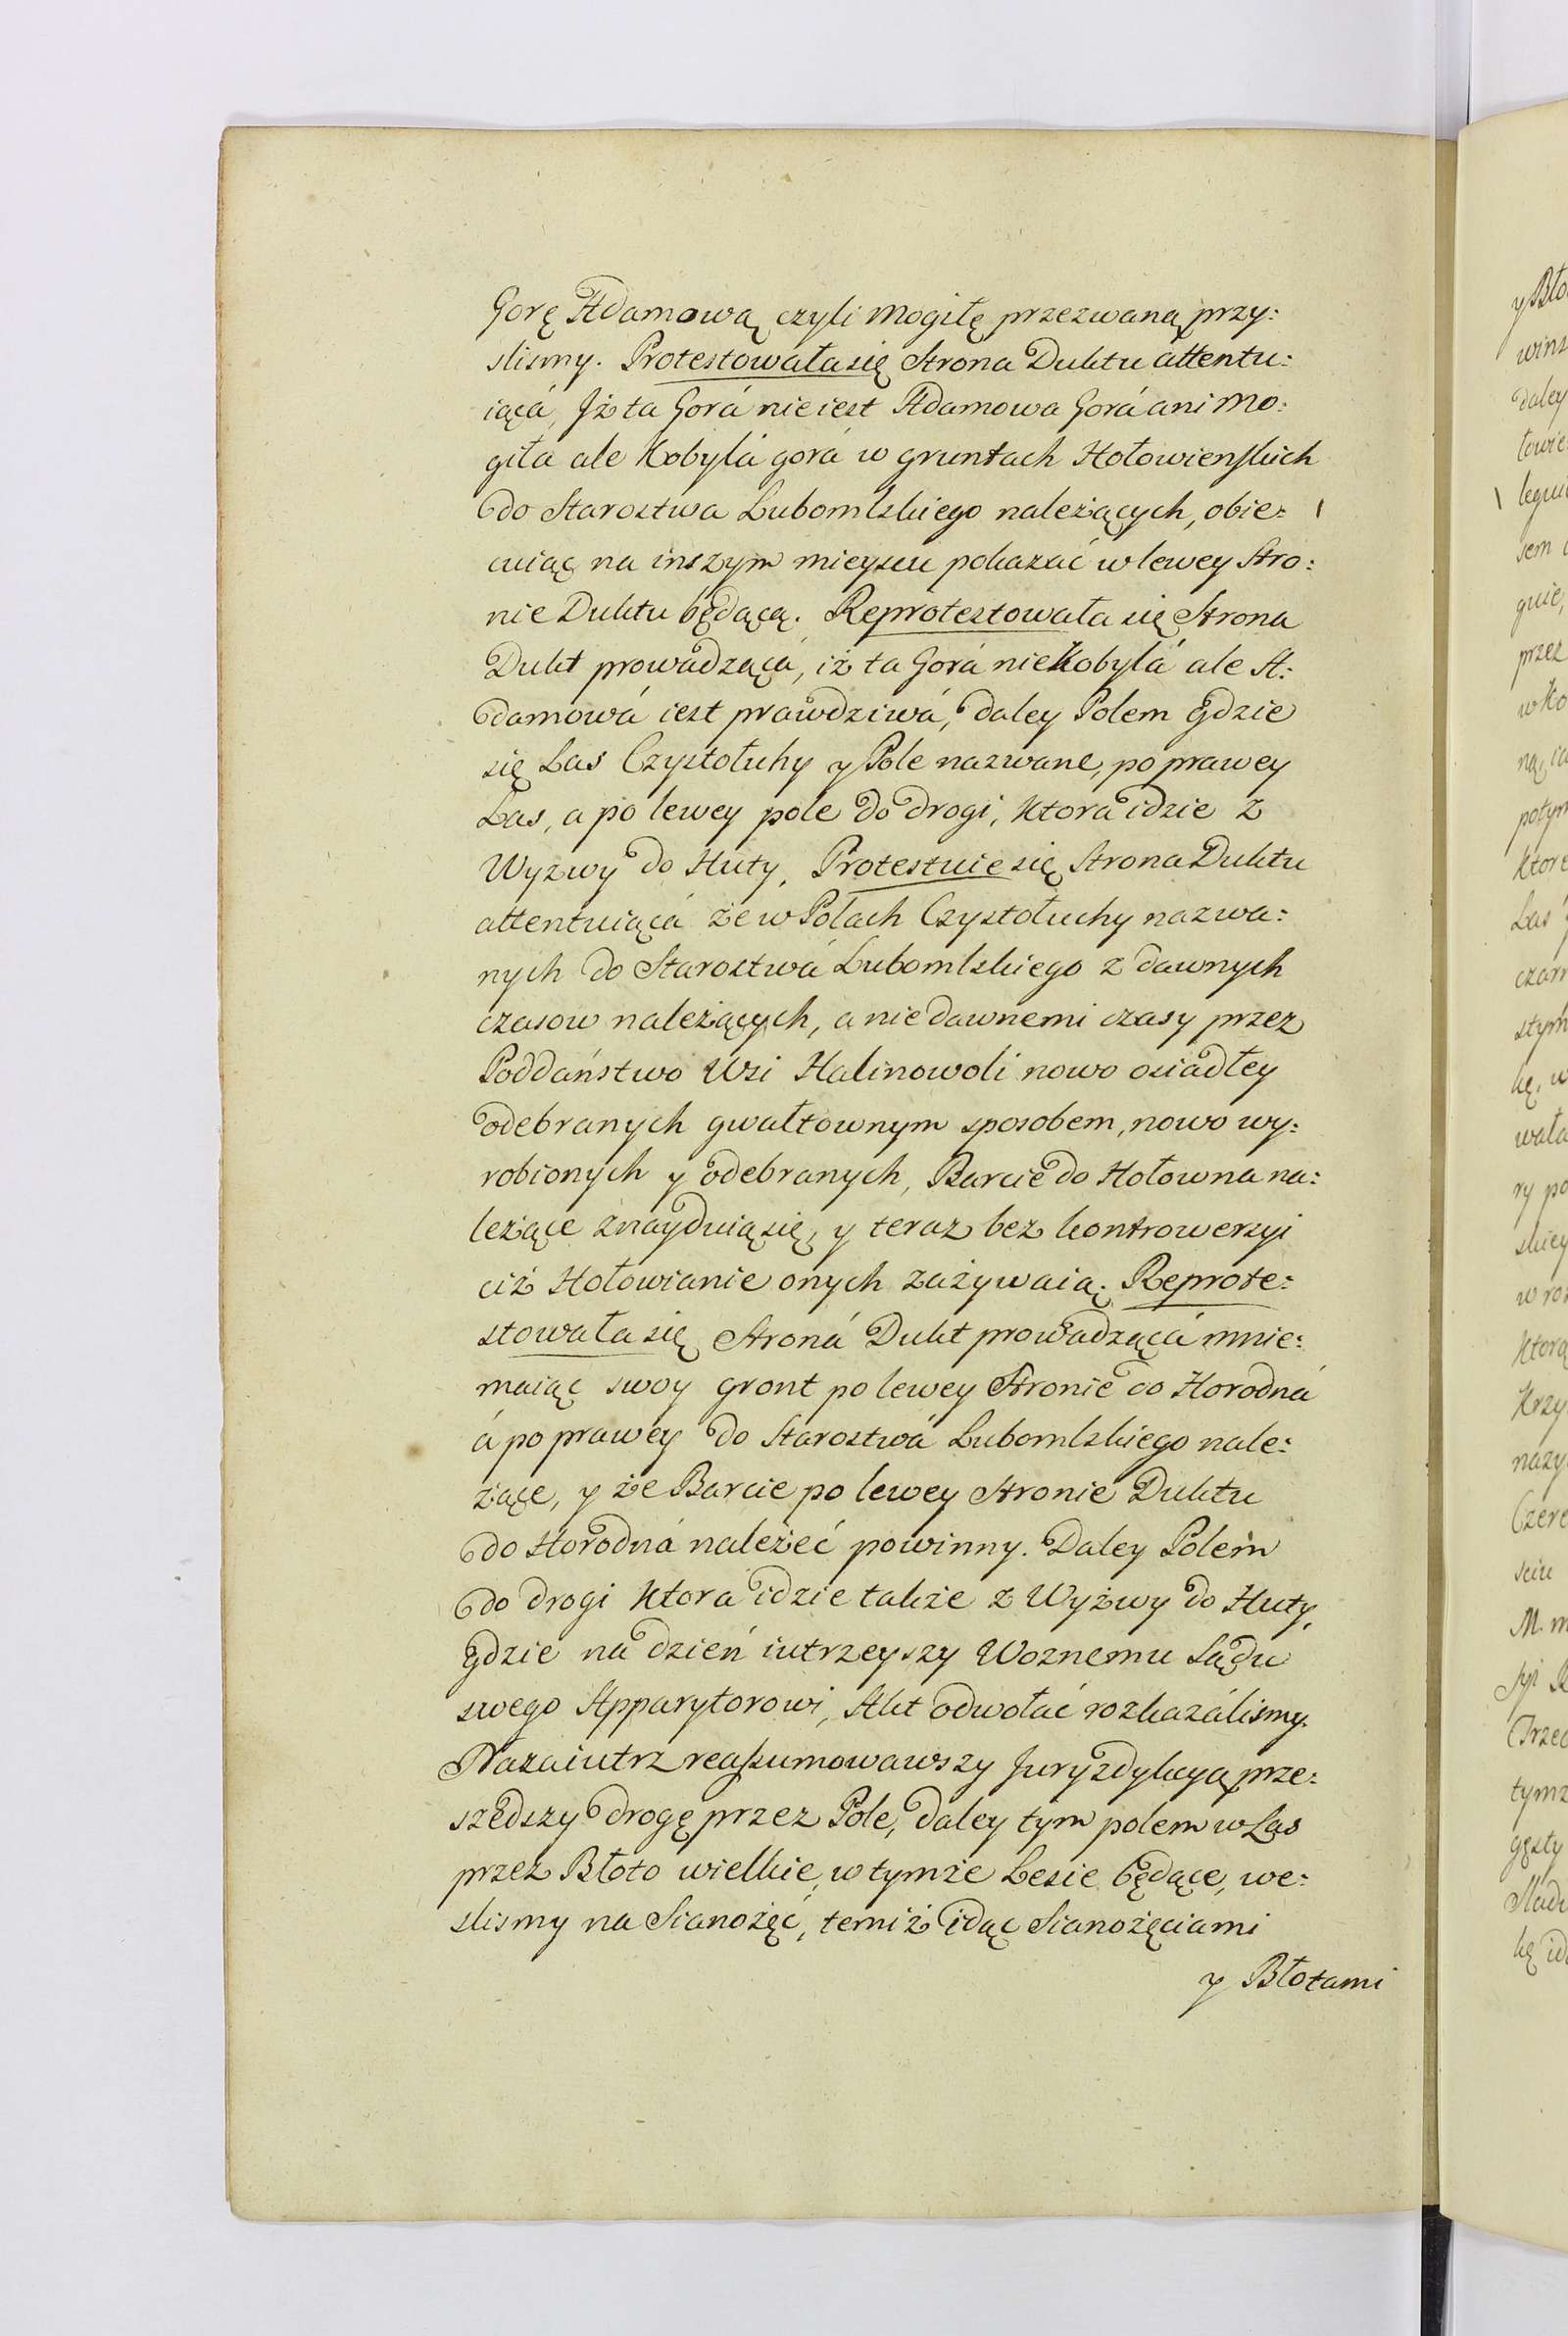 Gorę Adamową czyli Mogiłę przezwaną przy:
slismy. Protestowała się Strona Duktu attentu:
iącá, Jż ta Gorá nie iest Adamowa Gorá ani Mo:
giła ale Kobylá gorá w gruntach Hołowienskich
do Starostwa Lubomlskiego należących, obie:
cuiąc na inszym mieyscu pokazać w lewey Stro:
nie Duktu będącą. Reprotestowała się Strona
Dukt prowadzącá, iż ta Gorá nie Kobylá ale A:
damowá iest prawdziwá, daley Polem gdzie
się Las Czystołuhy y Pole nazwane, po prawey
Las, a po lewey pole do drogi, ktora idzie z
Wyzwy do Huty, Protestuie się Strona Duktu
attentuiącá że w Polach Czystołuchy nazwa:
nych do Starostwá Lubomlskiego z dawnych
czasow należących, a nie dawnemi czasy przez
Poddaństwo Wsi Halinowoli nowo osiadłey
odebranych gwałtownym sposobem, nowo wy:
robionych y odebranych, Barcie do Hołowna na:
leżące znayduią się, y teraz bez kontrowersyi
ciż Hołowianie onych zażywaią. Reprote:
stowała się Stroná Dukt prowadzącá mnie:
maiąc swoy gront po lewey Stronie do Horodná
á po prawey do Starostwá Lubomlskiego nale:
żące, y że Barcie po lewey Stronie Duktu
do Horodná należeć powinny. Daley Polem
do drogi ktora idzie także z Wyżwy do Huty,
gdzie na dzień iutrzeyszy Woznemu Sądu
swego Apparytorowi, Akt odwołać rozkazálismy.
Nazaiutrz reassumowawszy Juryzdykcyą prze:
szedszy drogę przez Pole, daley tym polem w Las
przez Błoto wielkie, w tymże Lesie będące, we:
slismy na Sianożęć, temiż idąc Sianożęciami
y Błotami